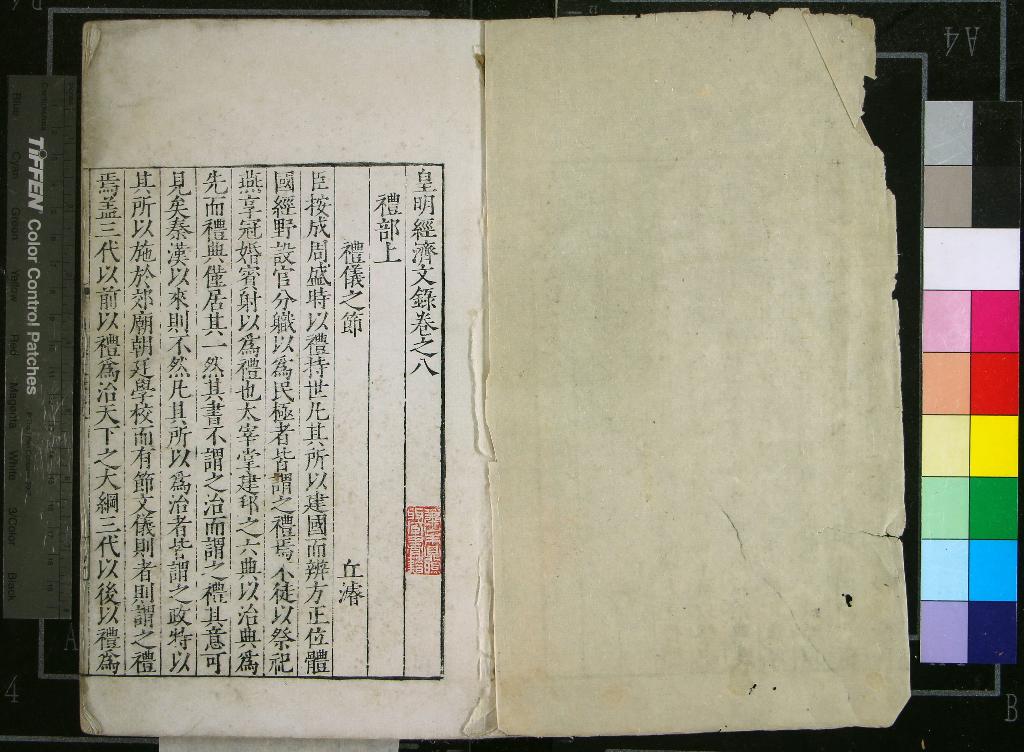 皇明經濟文錄卷之八
禮部上
禮儀之節
丘濬
臣按成周盛時以禮持世凡其所以建國而辨方正位體
國經野設官分職以爲民極者皆謂之禮焉不徒以祭祀
燕享冠婚賓射以爲禮也太宰掌建邦之六典以治典爲
先而禮典僅居其一然其書不謂之治而謂之禮其意可
見矣秦漢以來則不然凡其所以爲治者皆謂之政特以
其所以施於郊廟朝廷學校而有節文儀則者則謂之禮
焉盖三代以前以禮爲治天下之大綱三代以後以禮爲
TIFFEN Color Control Patches
Blue
Cyan
Green
Yellow
Red
Magenta
White
3/Color
Black
A4
A
4
B